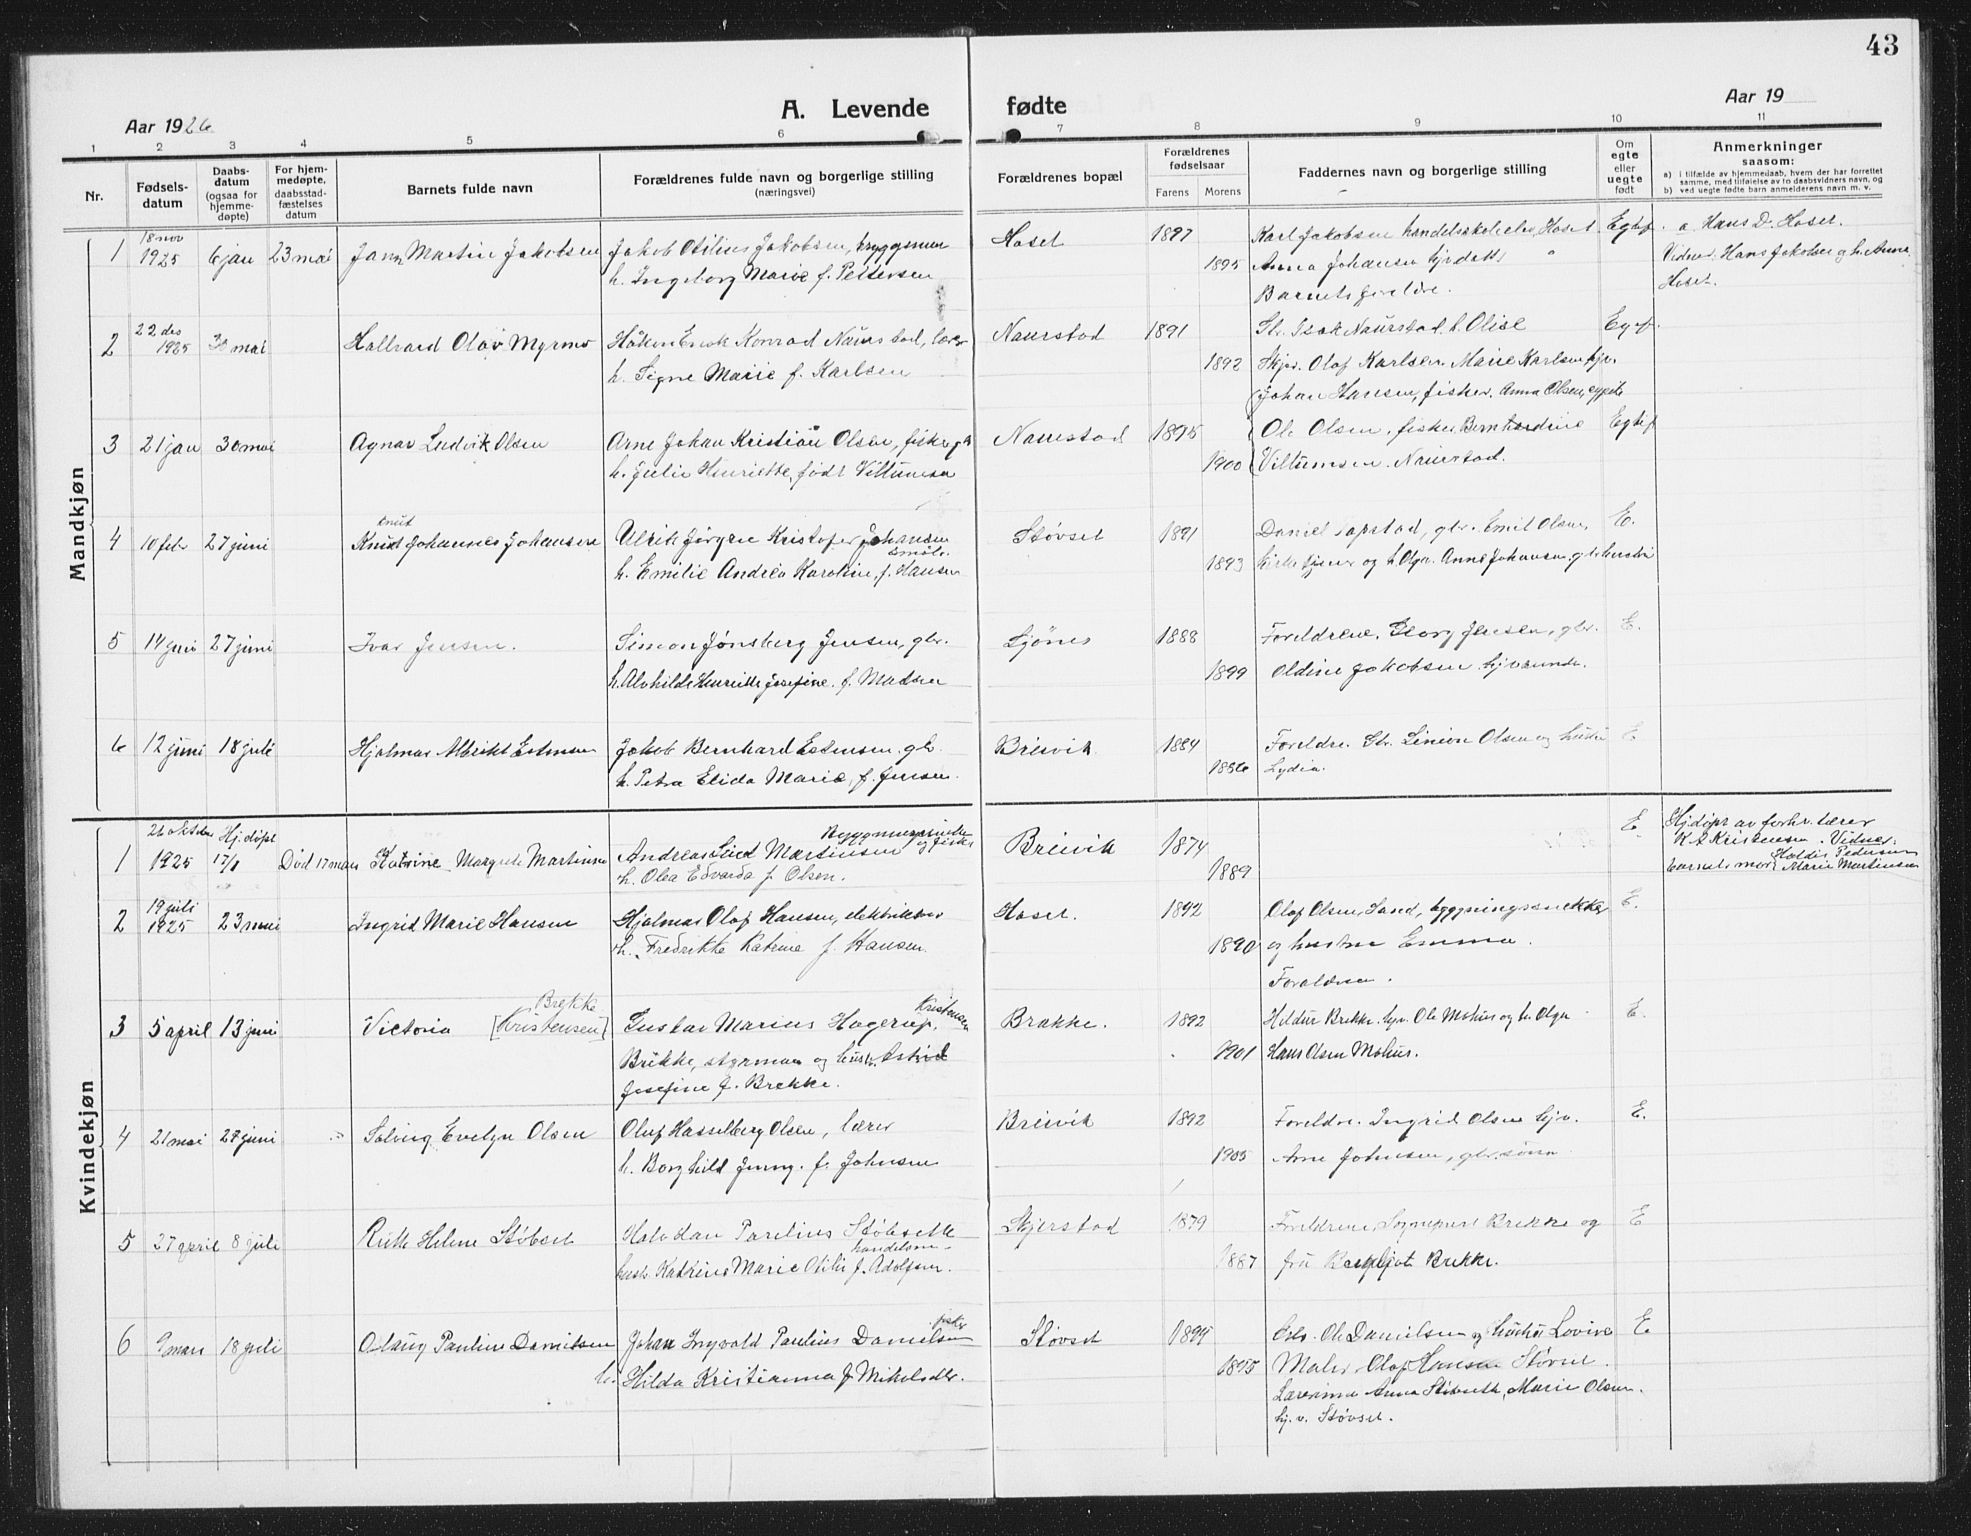 43
A. Levende fødte
Aar 1926
Aar 19
1 2 3 4 5 6 7 8 9 10 11
Nr.
Fødsels-
datum
Daabs-
datum
(ogsaa for
hjemme-
døpte)
For hjem-
medøpte,
daabsstad-
fæstelses
datum
Barnets fulde navn
Forældrenes fulde navn og borgerlige stilling
(næringsvei)
Forældrenes bopæl
Forældrenes
fødselsaar
Farens Morens
Faddernes navn og borgerlige stilling
Om
egte
eller
uegte
født
Anmerkninger
saasom:
a) i tilfælde av hjemmedaab, hvem der har forrettet
samme, med tilføielse av to daabsvidners navn, og
b) ved uegte fødte barn anmelderens navn m. v.
Mandkjøn
18 nov
1 1925 6 jan 23 mai Jann Martin Jakobsen Jakob Otilius Jakobsen, Hoset 1897 Karl Jakobsen handelsskoleelev, Hoset a. Hans D. Hoset.
h. Ingeborg Marie f. Pettersen 1895 Anna Johansen Vidner. Hans Jakobsen og h. Anna
Barnets foreldre. Hoset.
22 des
2 1925 30 mai Hallvard Olav Myrmo Håkon Erik Konrad Naurstad, lærer Naurstad 1891 Isak Naurstad, h. Olise
h. Signe Marie f. Karlsen 1892 Olaf Karlsen. Marie Karlsen hjv.
Johan Hansen, fisker. Anna Olsen,
3 21 jan 30 mai Agnar Ludvik Olsen Arne Johan Kristian Olsen, fisker, Naurstad 1895 Ole Olsen, fisker Bernhardine
h. Julie Henriette, født Viltumsen 1900 Viltumsen. Naurstad.
Knut
4 10 febr 27 juni Knut Johannes Johansen Ulrik Jørgen Kristofer Johansen Støvset 1891 Daniel gbr. Emil Olsen, E.
h. Emilie Andrea Karoline, f. Hansen 1893 og h. Olga. Anne Johansen, gbr.
5 14 juni 27 juni Ivar Jensen. Simon Jønsberg Jensen, gbr. Ljønes 1888 Foreldrene. Georg Jensen, gbr. E.
h. Alvhilde Henriette Josefine. f. Madsen 1899 Oldine Jakobsen
6 12 juni 18 juli Hjalmar Albrikt Estensen Jakob Bernhard Estensen, gbr. Breivik 1884 Foreldre. Gbr. Simon Olsen og hustru E
h. Petra Elida Marie, f. Jensen. 1886 Lydia.
Kvindekjøn
Hj. døpt
1 1925 17/1 Død 17 mars Katrine Margrete Martinsen Andreas Martinsen og fisker Breivik 1874 E Hj.døpt av forhv. lærer
h. Olea Edvarda f. Olsen. 1889 K A Kristensen. Vidner.
Barnets mor Pedersen
Marie Martinsen
19 juli
2 1925 23 mai Ingrid Marie Hansen Hjalmar Olaf Hansen, elektriker Hoset. 1892 Olaf Olsen Sand, bygningssnekker E.
h. Fredrikke Katrine f. Hansen. 1890 og hustru Emma.
Foreldrene.
Brekke Kristensen
3 5 april 13 juni Victoria [Kristensen] Gustav Marius Hagerup, Brække. 1892 Hildur Brekke. hjv. Ole Mohus og h. Olga E.
Brekke, styrman og hustr. Astrid 1901 Hans Olsen Mohus.
Josefine f. Brekke.
4 21 mai 27 juni Solveig Evelyn Olsen Oluf Hasselberg Olsen, lærer Breivik 1892 Foreldre. Ingrid Olsen hjv. E.
h. Borghild Jenny. f. Johnsen 1905 Arne Johnsen, gbr.sønn
5 27 april 8 juli Ruth Helene Støbset Halvdan Parelius Støbseth Skjerstad 1879 Foreldrene, Sogneprest Brekke og E
handelsm.
hustr. Katrine Marie Otilie f. Adolfsen. 1887 fru Bergljot Brekke.
fisker
6 9 mars 18 juli Olaug Pauline Danielsen Johan Ingvald Paulius Danielsen Støvset 1894 Ole Danielsen og hustru Lovise E
h. Hilda Kristianna f Mikalsdtr. 1895 Maler Olaf Hansen Støvset.
Lærerinne Anna Støbseth, Marie Olsen.
hj. v. Støvset.